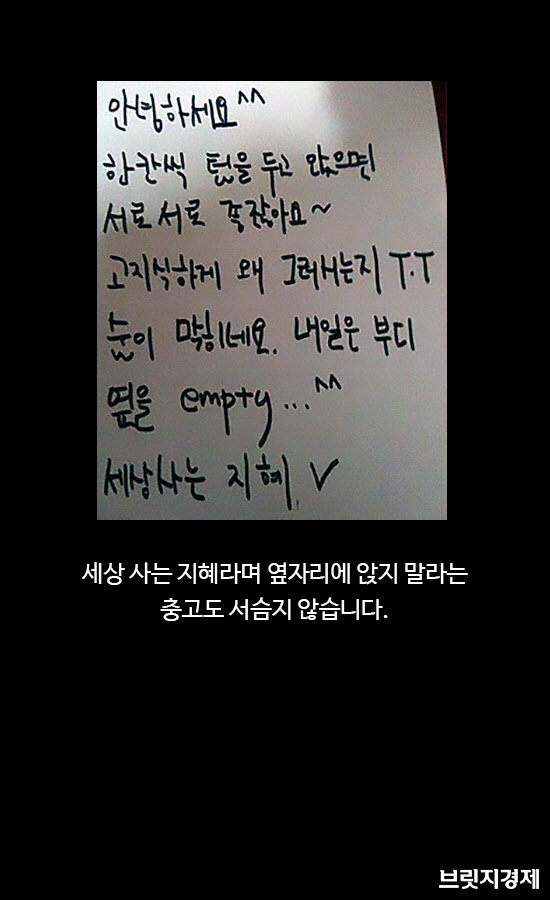 안녕하세요^^
한칸씩 텀을 두고 앉으면
서로서로 좋잖아요~
고지식하게 왜 그러시는지 T.T
숨이 막히네요. 내일은 부디
옆을 empty...^^
세상사는 지혜 V
세상 사는 지혜라며 옆자리에 앉지 말라는
충고도 서슴지 않습니다.
브릿지경제